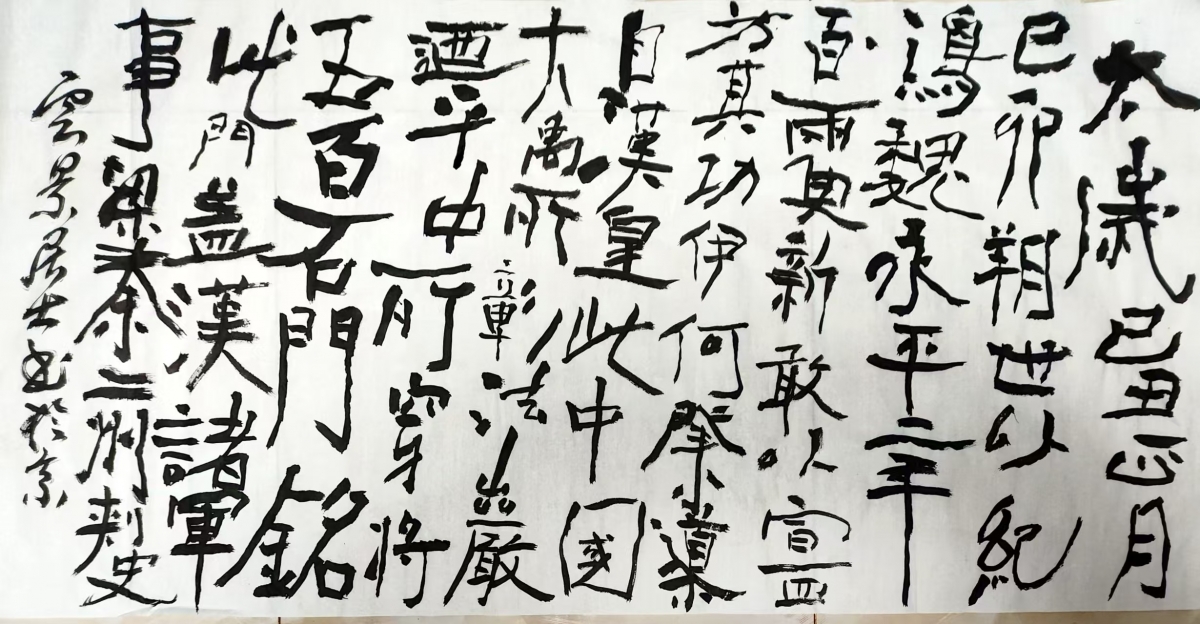 太歲己丑正月
己卯朔世以紀
鴻魏永平二年
百雨更新敢以宣
其功伊何
自漢皇此中國
大所法山嚴
迺平中所穿將
五百石門銘
此門蓋漢諸軍
事梁秦二州刺史
雲景居士書於京